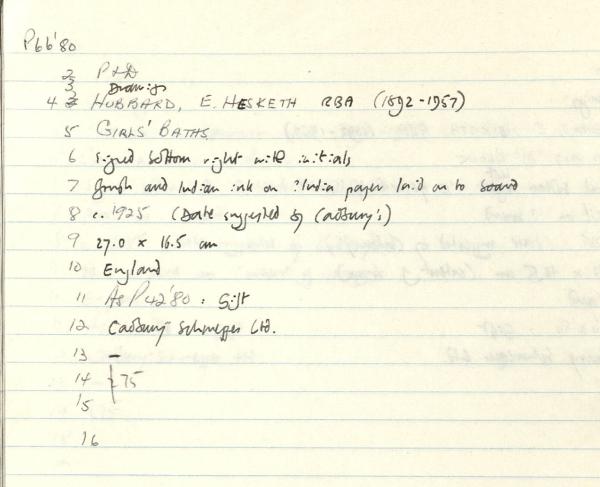 P66'80
2 P+D
3 Drawings
4 HUBBARD, E. HESKETH RBA (1892-1957)
5 GIRLS' BATHS
6 signed bottom right with initials
7 gouache and Indian ink on ?India paper laid on to board
8 c. 1925 (Date suggested by Cadbury's)
9 27.0 x 16.5 cm
10 England
11 As P42'80 : Gift
12 Cadbury Schweppes Ltd.
13 —
14 75
15
16